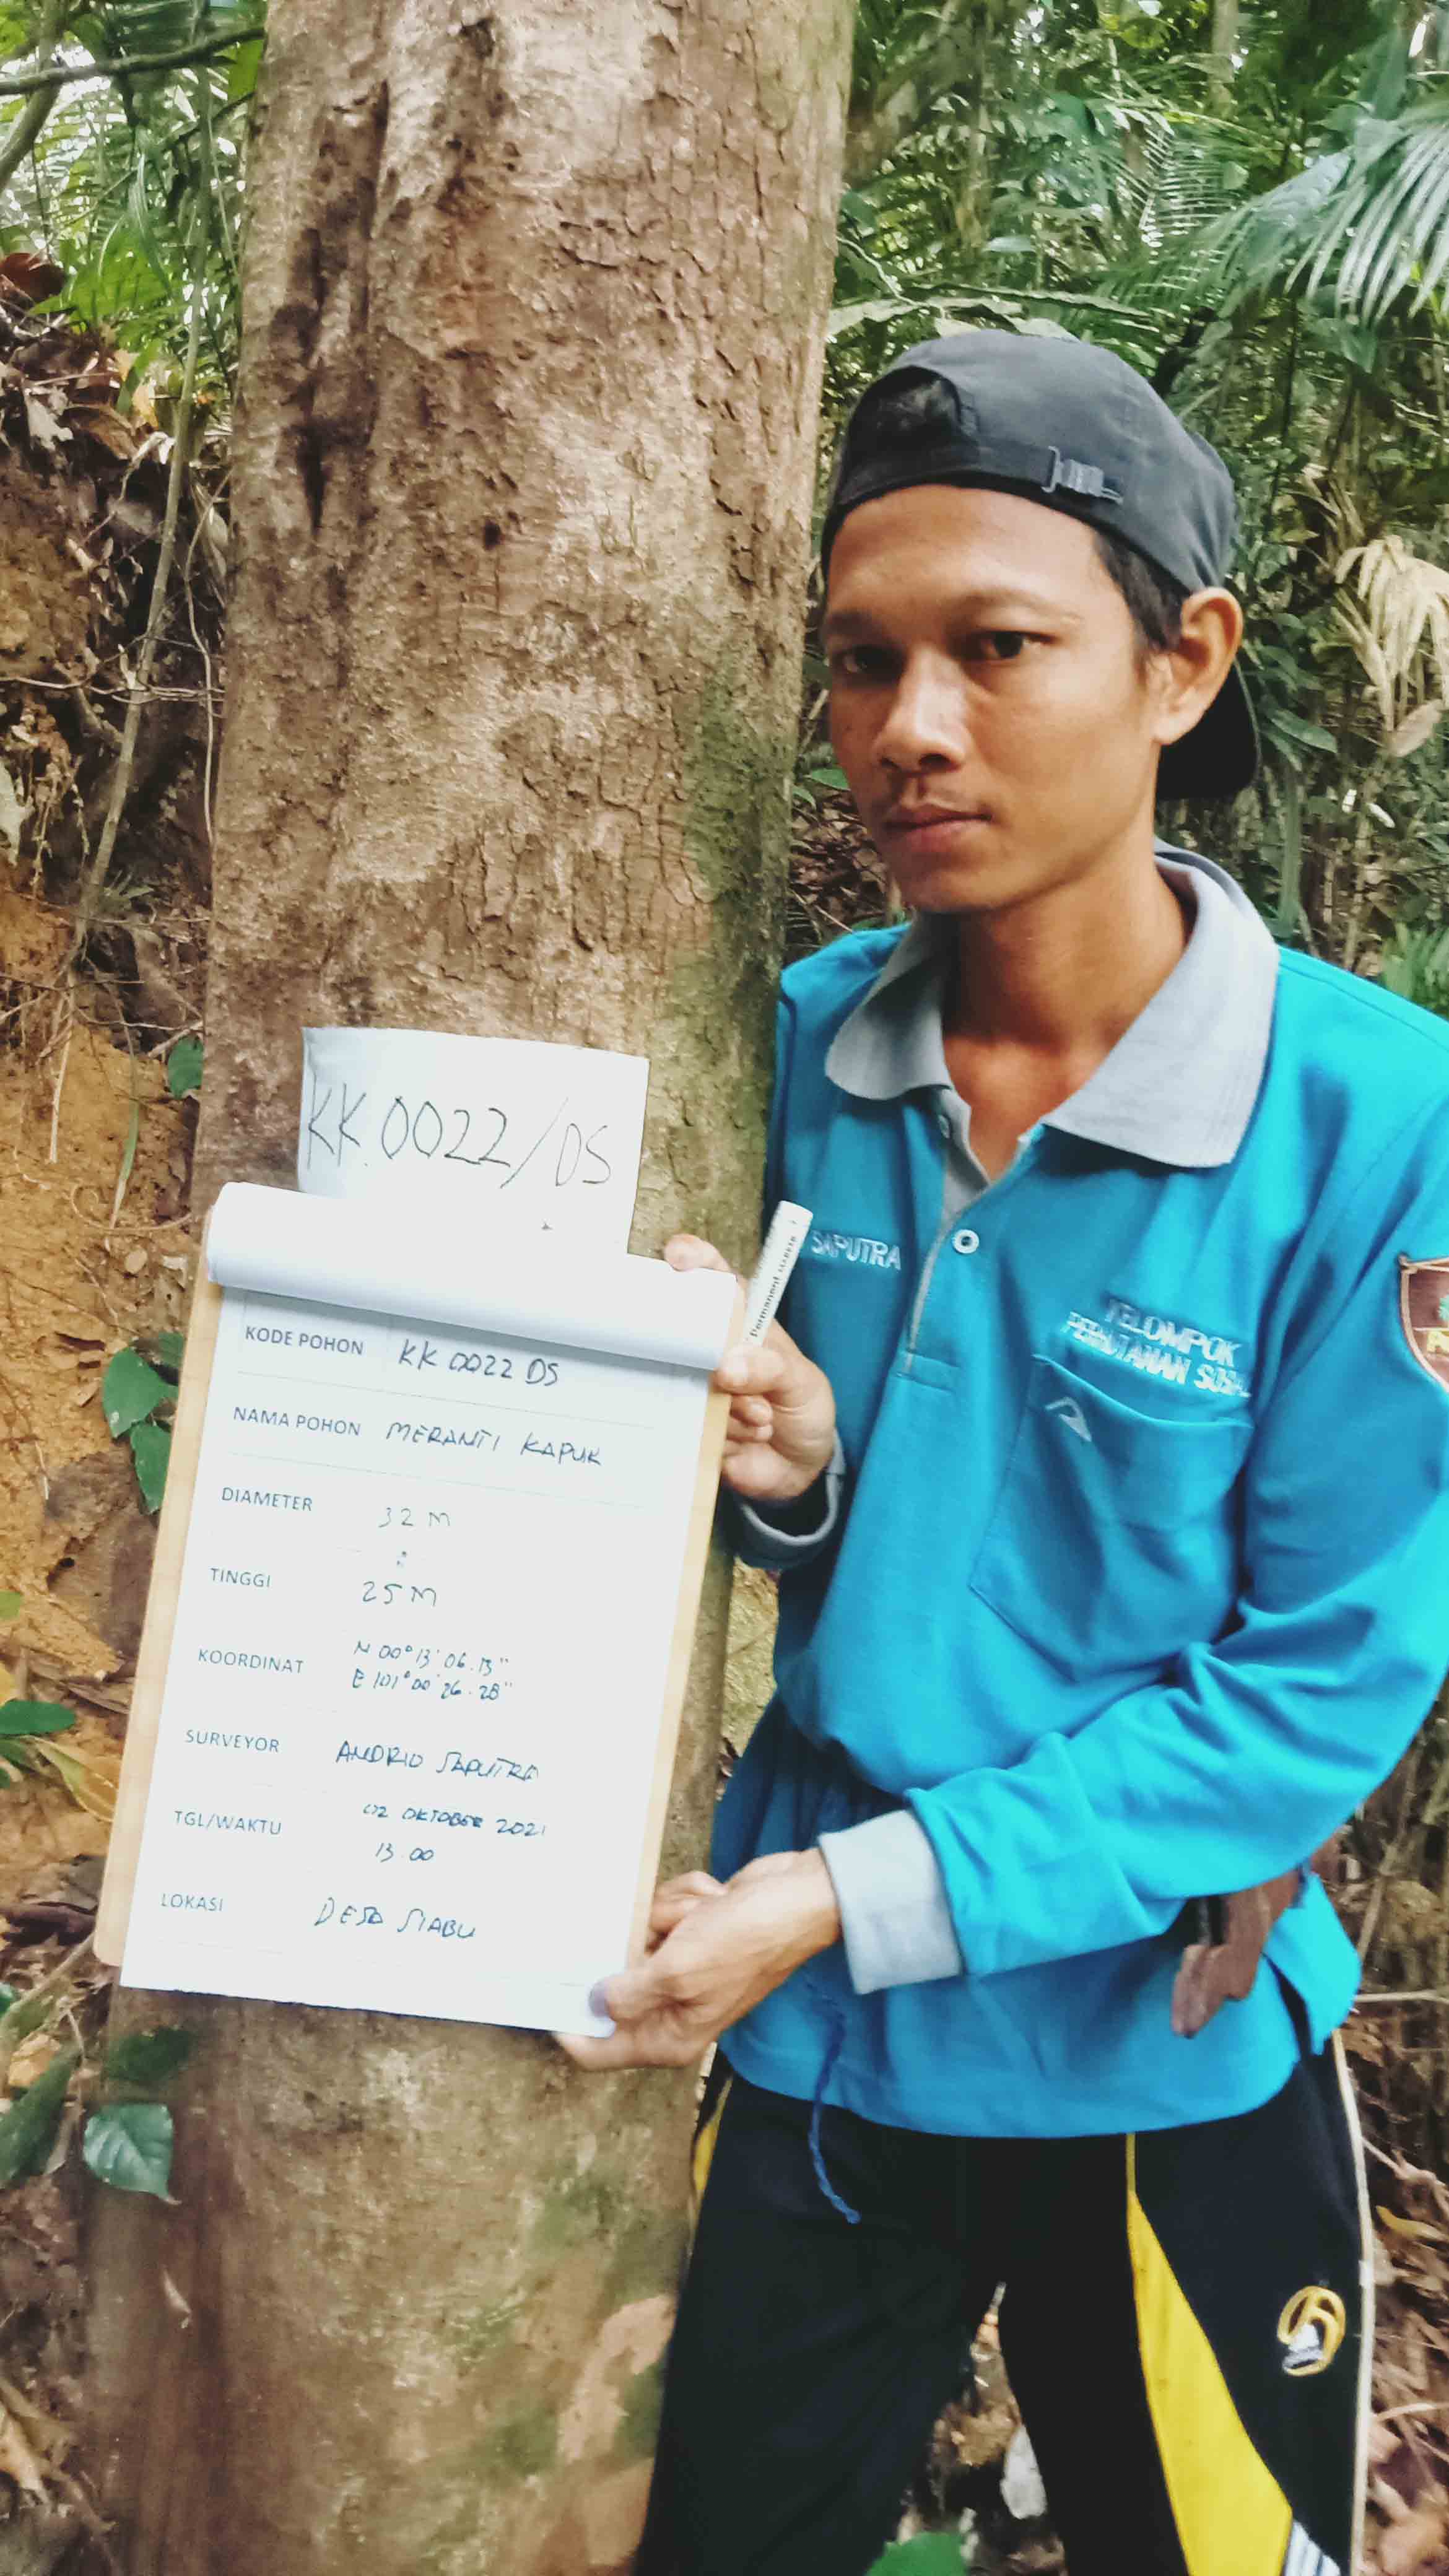 KK.0022/DS
KODE POHON KK 0022 DS
NAMA POHON MERANTI KAPUK
DIAMETER 32 M
TINGGI 25 M
KOORDINAT N 00° 13' 06.13"
E 101° 00' 26.28"
SURVEYOR ANDRIO SAPUTRA
TGL/WAKTU 02 OKTOBER 2021
13.00
LOKASI DESA SIABU
Permanent marker
SAPUTRA
KELOMPOK
PERHUTANAN